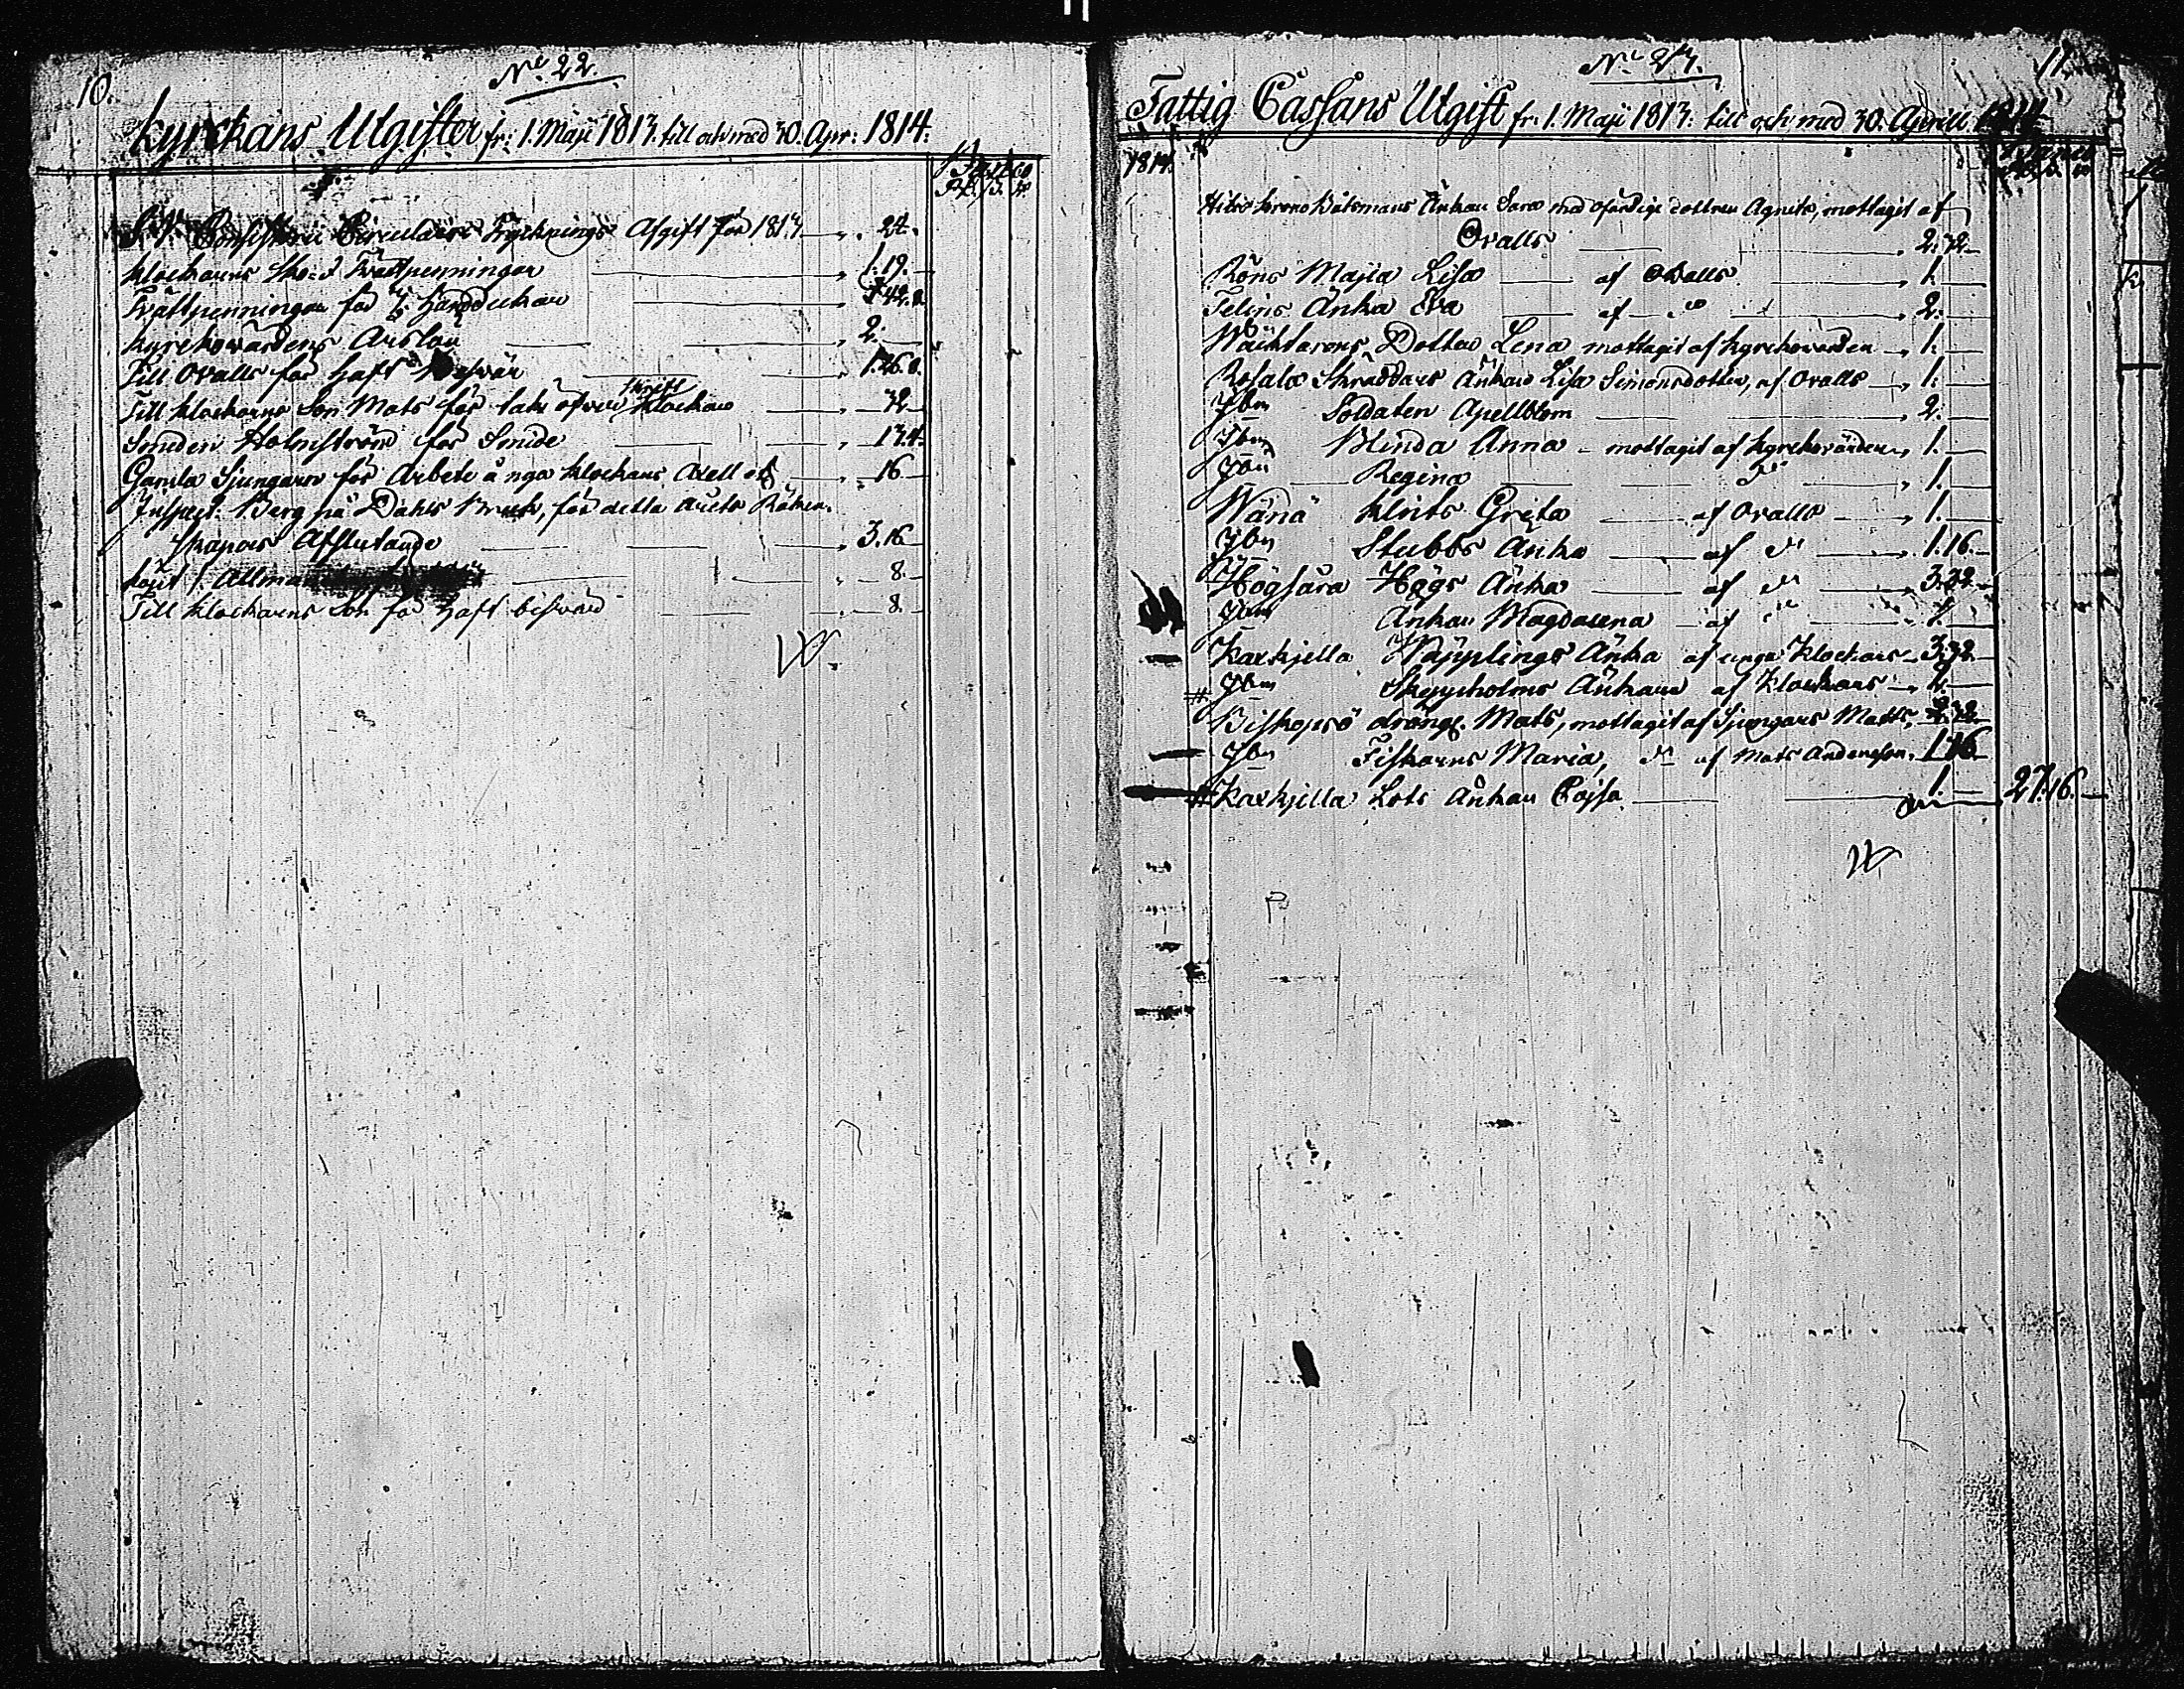 10.
No 22.
Kyrckans Utgifter fr: 1. Maji 1813. till och med 30. Apr: 1814.
Banco
Rd. s. r.
Consistorii Circulairs Tryknings Afgift för 1813 24.
Klockarens Sko- & Tvättpenningar 1. 19.
Tvättpenningar för Handdukar 42.
Kyrckovärdens Årslön 2.
Till Ovalls för haft besvär 1. 26. 8.
Till Klockarens Son Mats för taki öfver Klockan 32
Smeden Holmström för Smide 13. 4.
Gamla Sjungaren för Arbete å nya Klockans Axell 16
Inspect. Berg på Dahls Bruk, för detta årets Räken-
skapers Afslutande 3. 16
8.
Till Klockarens Son för haft besvär 8.
11.
Fattig Cassans Utgift fr: 1. Maji 1813: till och med 30. Aprill 1814
1814.
Hitis Krono Båtsmans Änkan Sara med ofärdiga dottren Agnita, mottagit af
Ovalls 2. 32
Röns Majia Lisa af Ovalls 1.
Felins Änka Eva af do 2.
Wäcktarens Dotter Lena mottagit af Kyrckovärden 1.
Rosala Skräddars Änkan Lisa Simonsdotter, af Ovalls 1.
Ibm Soldaten Apellblom 2.
Ibm Blinda Anna mottagit af Kyrckovärden 1.
Ibm Regina do 1.
Wänö Klints Greta af Ovalls 1.
Ibm Stubbs Änka af do 1. 16.
Högsåra Högs Änka af do 3. 32
Ibm Änkan Magdalena af do 1.
Kaxkjella Näpplings Änka af unga Klockars 3. 32
Ibm Skepsholms Änkan af Klockars
Biskopsö dräng. Mats, mottagit af Sjungars Matts, 32
Ibm Fiskarns Maria, do af Mats Andersson. 1. 16
Kaxkjella Lots Änkan Cajsa 1. 27. 16.